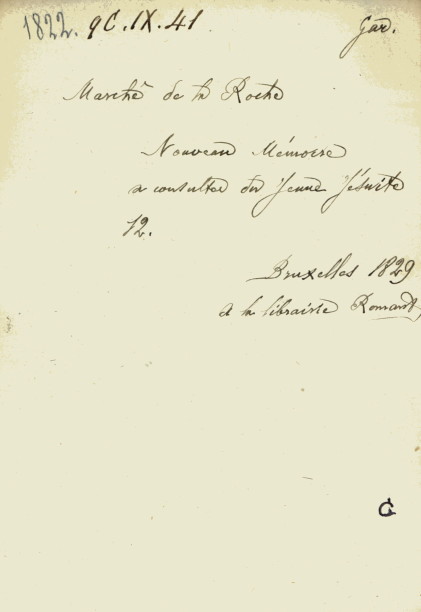 1822. 9C.IX.41 Gar.
Marché de la Roche
Nouveau Mémoire
a consulter du Jeune Jésuite
12.
Bruxelles 1829
A la librairie Romant
C